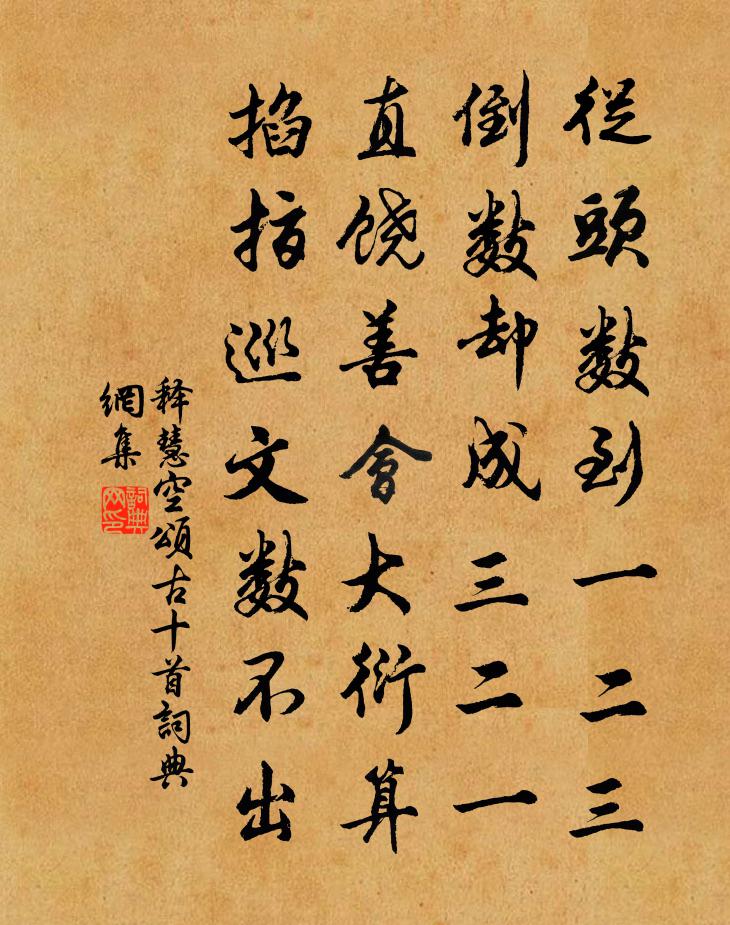 從頭数到一二三
倒数却成三二一
直饶善會大衍算
掐指巡文数不出
释慧空頌古十首詞典
網集
詞典網印